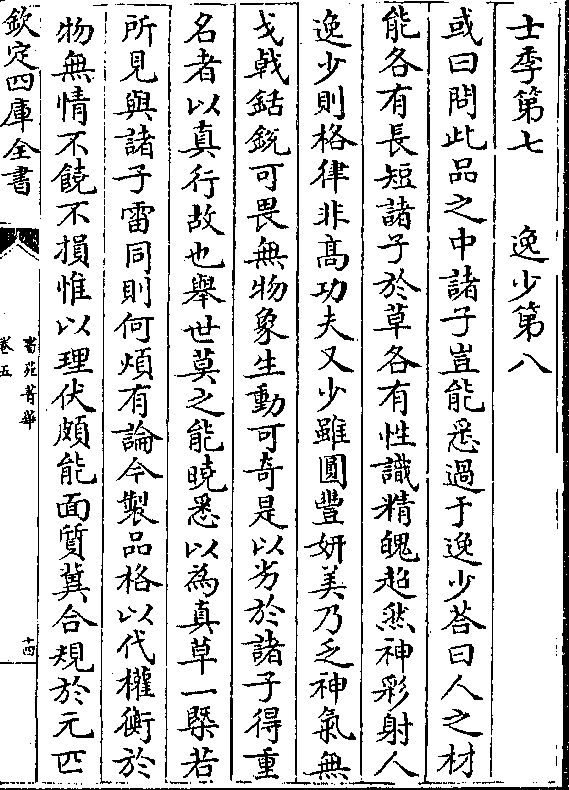 士季第七　逸少第八
或曰問此品之中諸子豈能悉過于逸少荅曰人之材
能各有長短諸子於草各有性識精魄超然神彩射人
逸少則格律非髙功夫又少雖圓豐妍美乃乏神氣無
戈戟銛銳可畏無物象生動可奇是以劣於諸子得重
名者以真行故也舉世莫之能曉悉以為真草一槩若
所見與諸子雷同則何煩有論今製品格以代權衡於
物無情不饒不損惟以理伏頗能面質冀合規於元匹
欽定四庫全書
書苑菁華
卷五
十四